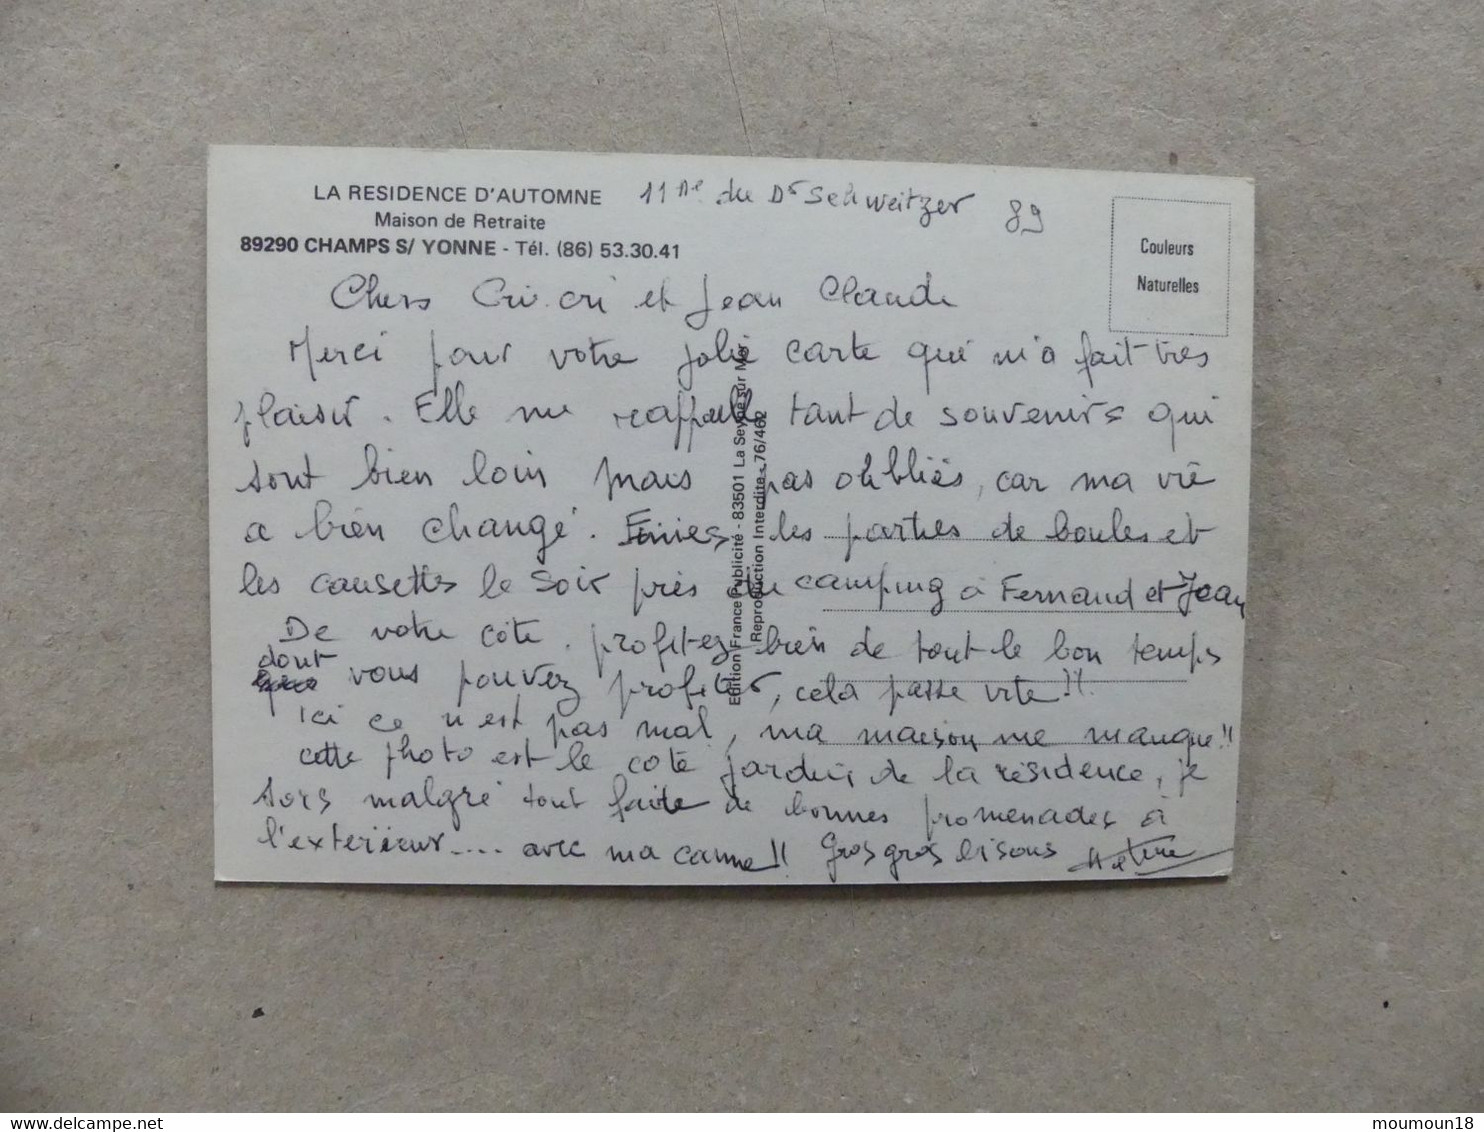 LA RESIDENCE D'AUTOMNE
Maison de Retraite
89290 CHAMPS S/ YONNE - Tél. (86) 53.30.41
11 du Dr Schweitzer
89
Couleurs
Naturelles
Chers Cri.cri et Jean Claude
Merci pour votre jolie carte qui m'a fait très
plaisir. Elle me rappelle tant de souvenirs qui
sont bien loin mais pas oubliés, car ma vie
a bien changé. Finies les parties de boules et
les causettes le soir près du camping à Fernand et Jean
De votre côté. profitez bien de tout le bon temps
dont vous pouvez profiter, cela passe vite!!
Ici ce n'est pas mal, ma maison me manque!!
cette photo est le coté jardin, de la résidence, je
sors malgré tout faite de bonnes promenades à
l'exterieur.... avec ma canne!! Gros gros bisous
Edition France Publicité - 83501 La Seyne sur Mer
Reproduction Interdite - 76/462
moumoun18